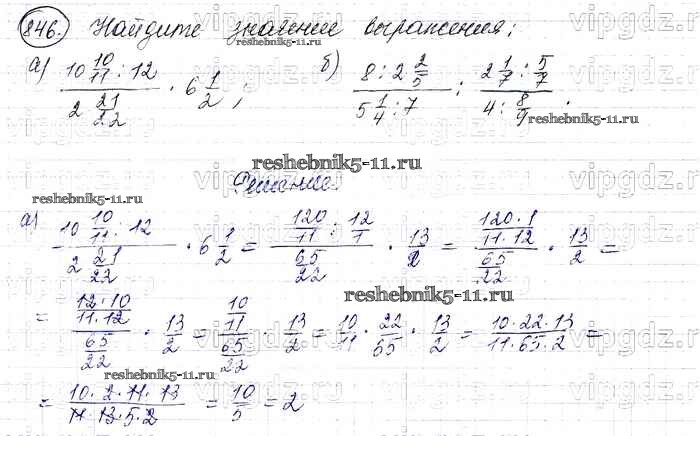 846. Найдите значение выражения:
а) (10 10/11 : 12)/(2 21/22) · 6 1/2; б) (8 : 2 2/5)/(5 1/4 : 7) : (2 1/7 : 5/7)/(4 : 8/9).
reshebnik5-11.ru
Решение.
а) (10 10/11 : 12)/(2 21/22) · 6 1/2 = (120/11 : 12/1)/(65/22) · 13/2 = (120·1/11·12)/(65/22) · 13/2 =
= (12·10/11·12)/(65/22) · 13/2 = (10/11)/(65/22) · 13/2 = 10/11 · 22/65 · 13/2 = 10·22·13/11·65·2 =
= 10·2·11·13/11·13·5·2 = 10/5 = 2
reshebnik5-11.ru
reshebnik5-11.ru
reshebnik5-11.ru
reshebnik5-11.ru
reshebnik5-11.ru
vipgdz.ru